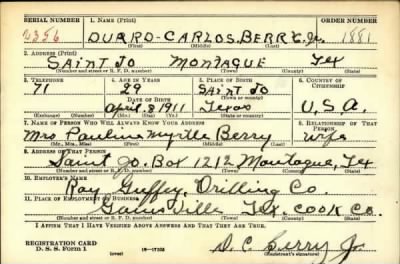 SERIAL NUMBER 1. NAME (Print) ORDER NUMBER
2356 DUARD-CARLOS.BERRY.Jr. 1881
(First) (Middle) (Last)
2. ADDRESS (Print)
SAINT JO MONTAGUE TEX
(Number and street or R. F. D. number) (Town) (County) (State)
3. TELEPHONE 4. AGE IN YEARS 5. PLACE OF BIRTH 6. COUNTRY OF CITIZENSHIP
71 29 SAINT JO
DATE OF BIRTH (Town or county)
April 8 1911 Texas U.S.A.
(Exchange) (Number) (Mo.) (Day) (Yr.) (State or country)
7. NAME OF PERSON WHO WILL ALWAYS KNOW YOUR ADDRESS 8. RELATIONSHIP OF THAT PERSON
Mrs Pauline Myrtle Berry Wife
(Mr., Mrs., Miss) (First) (Middle) (Last)
9. ADDRESS OF THAT PERSON
Saint Jo. Box 1212 Montague, Tex
(Number and street or R. F. D. number) (Town) (County) (State)
10. EMPLOYER'S NAME
Ray Guffey. Drilling Co.
11. PLACE OF EMPLOYMENT OR BUSINESS
Gainsville Tex. COOK Co.
(Number and street or R. F. D. number) (Town) (County) (State)
I AFFIRM THAT I HAVE VERIFIED ABOVE ANSWERS AND THAT THEY ARE TRUE.
REGISTRATION CARD
D. S. S. Form 1 (over) D. C. Berry Jr
(Registrant's signature)